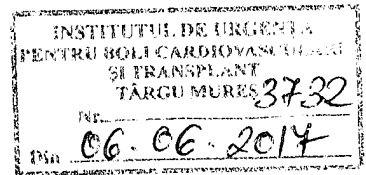 INSTITUTUL DE URGENTA
PENTRU BOLI CARDIOVASCULARE
ŞI TRANSPLANT
TÂRGU MUREŞ
Nr. 3732
Din 06.06.2017